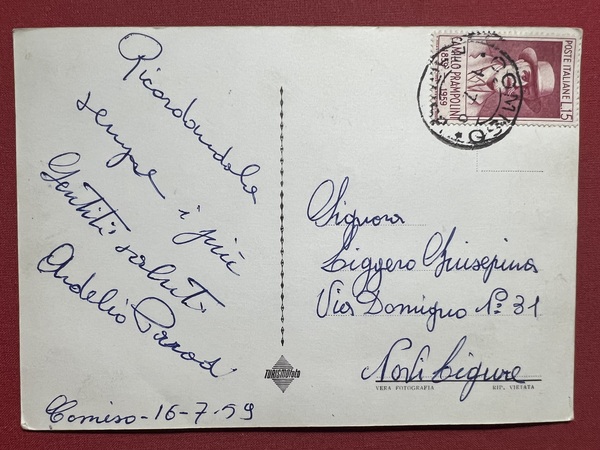 Ricordandola
sempre i più
Gentili saluti
Ardelio Parodi
Comiso-16-7-59
POSTE ITALIANE L.15
CAMILLO PRAMPOLINI
1859 1959
COMISO
Signora
Liggero Giuseppina
Via Domigno N° 31
Novi Ligure
TURISMOfoto
VERA FOTOGRAFIA
RIP. VIETATA